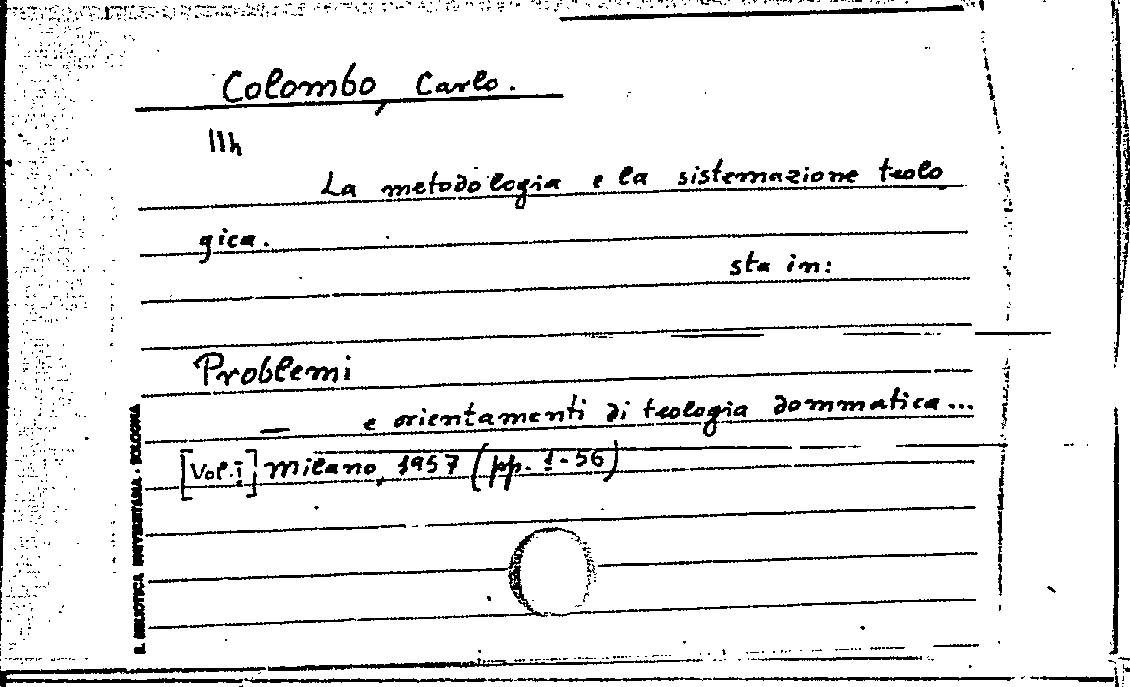 Colombo, Carlo.
11h
La metodologia e la sistemazione teolo
gica.
sta in:
Problemi
— e orientamenti di teologia dommatica...
[Vol. I] Milano, 1957 (pp. 1-56)
B. BIBLIOTECA UNIVERSITARIA - BOLOGNA